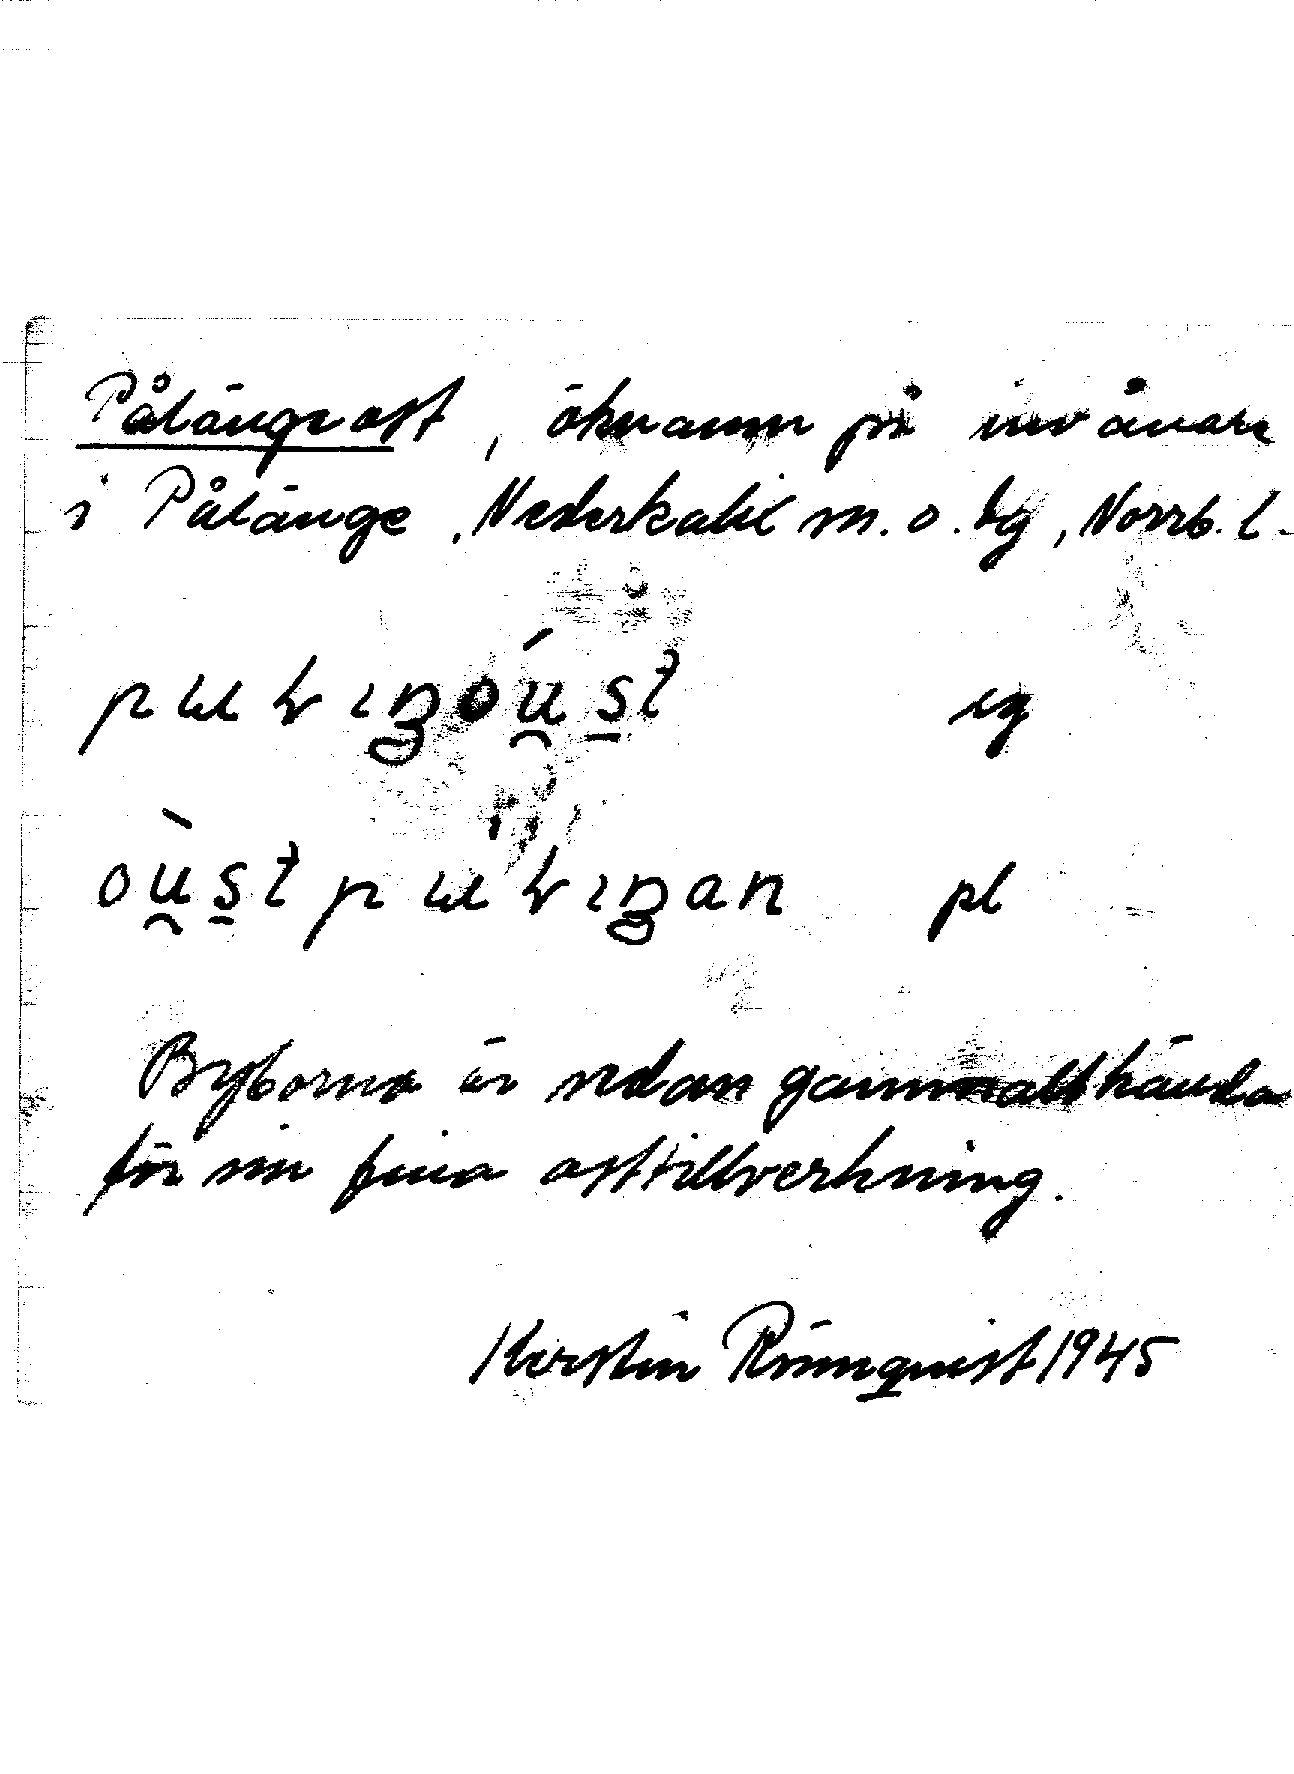 Pålänge ost, öknamn på invånare
i Pålänge, Nederkalix sn. o. by, Norrb. l.
sg
pl
Byborna är sedan gammalt kända
för sin fina osttillverkning.
Kerstin Rönnquist 1945